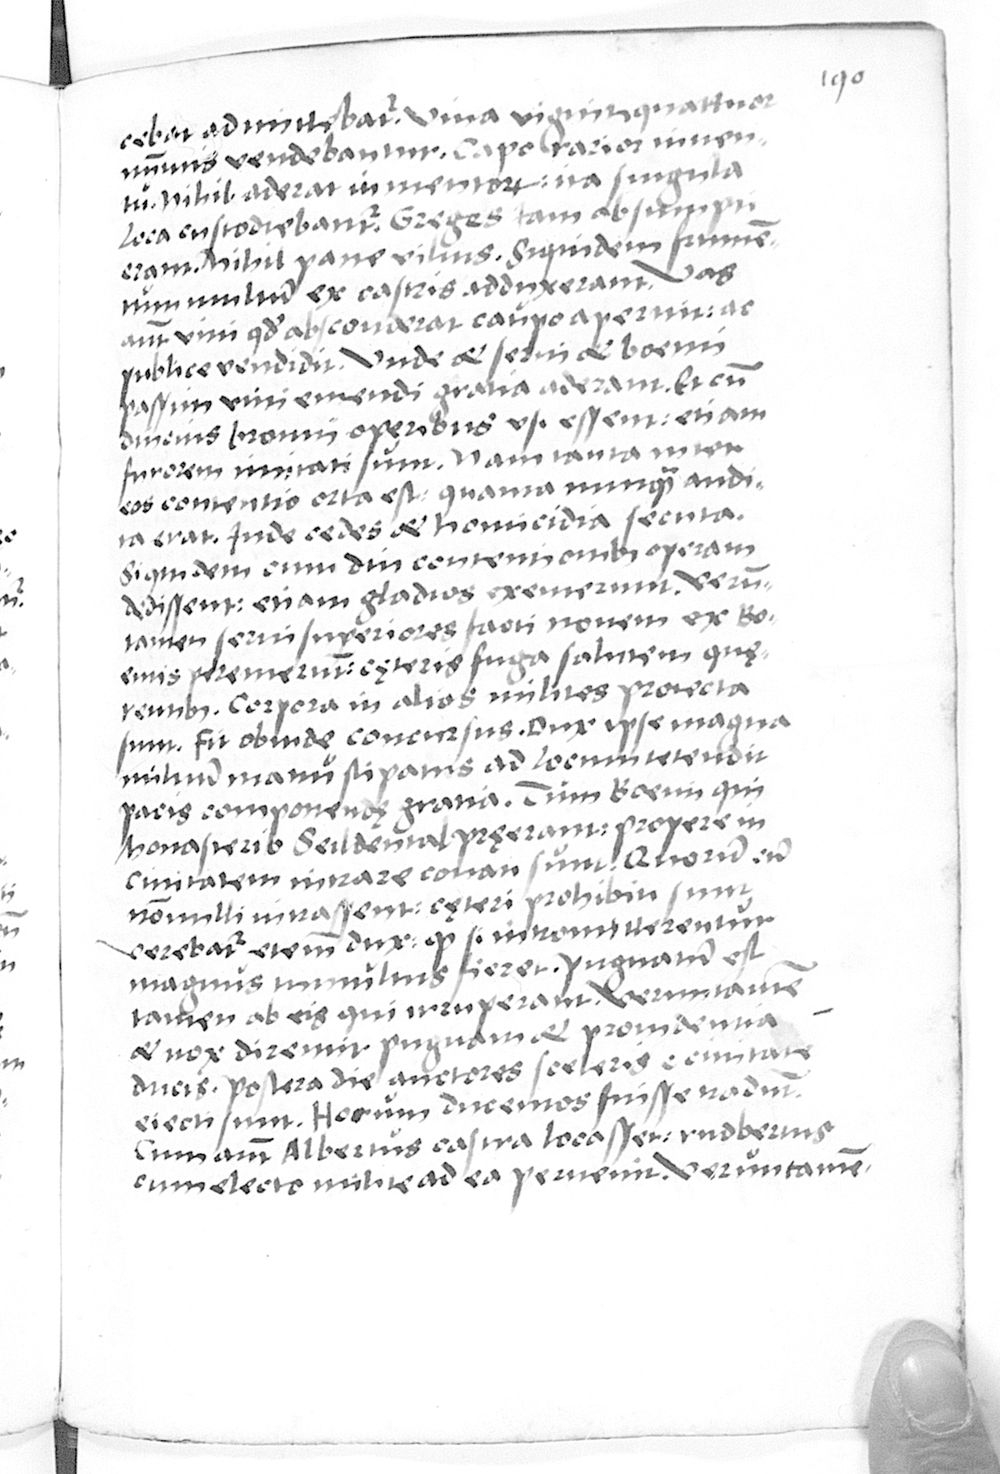 190
cebat admittebat᷑. Vina viginti quattuor
nūmis vendebantur. Capo rarior inven-
tū. Nihil aderat in mentorz: na singula
loca custodiebant᷑. Greges tam absumpti
erant. Nihil pane vilius. Siquidem frumē-
tum multū ex castris adduxerant. Vas
aūt vini qd̕ absconderat caupo aperuit: ac
publice vendidit. Unde & servi & boemi
passim vini emendi gratia aderant. Et cū
diucius bromii operibus usi essent: etiam
furorem imitati sunt. Nam tanta inter
eos contentio orta est: quanta nunqꝫ audi-
ta erat. Inde cedes & homicidia secuta.
Siquidem cum diu contentionibꝫ operam
dedissent: etiam gladios exemerunt. Verū-
tamen servi superiores facti novem ex Bo-
emis peremerūt: cęteris fuga salutem quę-
rentibꝫ. Corpora in alios milites proiecta
sunt. Fit obinde concursus. Dux ipse magna
militū manu stipatus ad locum tetendit
pacis componendę gratia. Tum Boemi qui
Monasterio Seildental pręerant: propere in
civitatem intrare conati sunt. Quorū cū
nōnulli intrassent: cęteri prohibiti sunt
verebat᷑ etenī dux: ꝙ si intromitterentur
magnus tumultus fieret. Pugnatū est
tamen ab eis qui irruperant. Veruntamē
& nox diremit pugnam & providentia
ducis. Postera die auctores sceleris e civitate
eiecti sunt. Horum ducentos fuisse tradūt.
Cum aūt Albertus castra locasset: rudbertus
cum electo milite ad ea pervenit. Veruntamē-